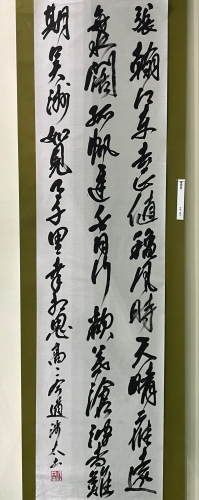 張翰江東去正値穐風時天晴一雁遠
海闊孤帆遲白日行欲暮滄波杳難
期吳洲如見月千里幸相思